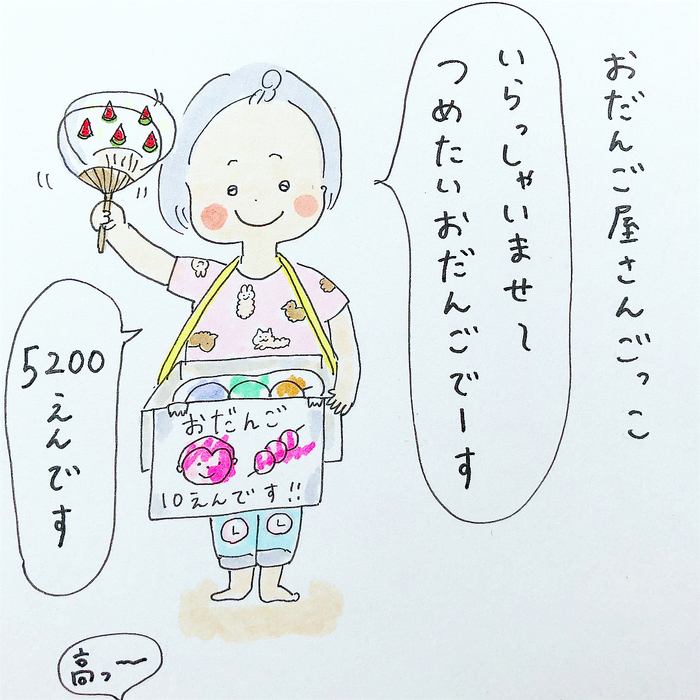 おだんご屋さんごっこ
いらっしゃいませ～
つめたいおだんごでーす
おだんご
10えんです!!
5200
えんです
高っ〜